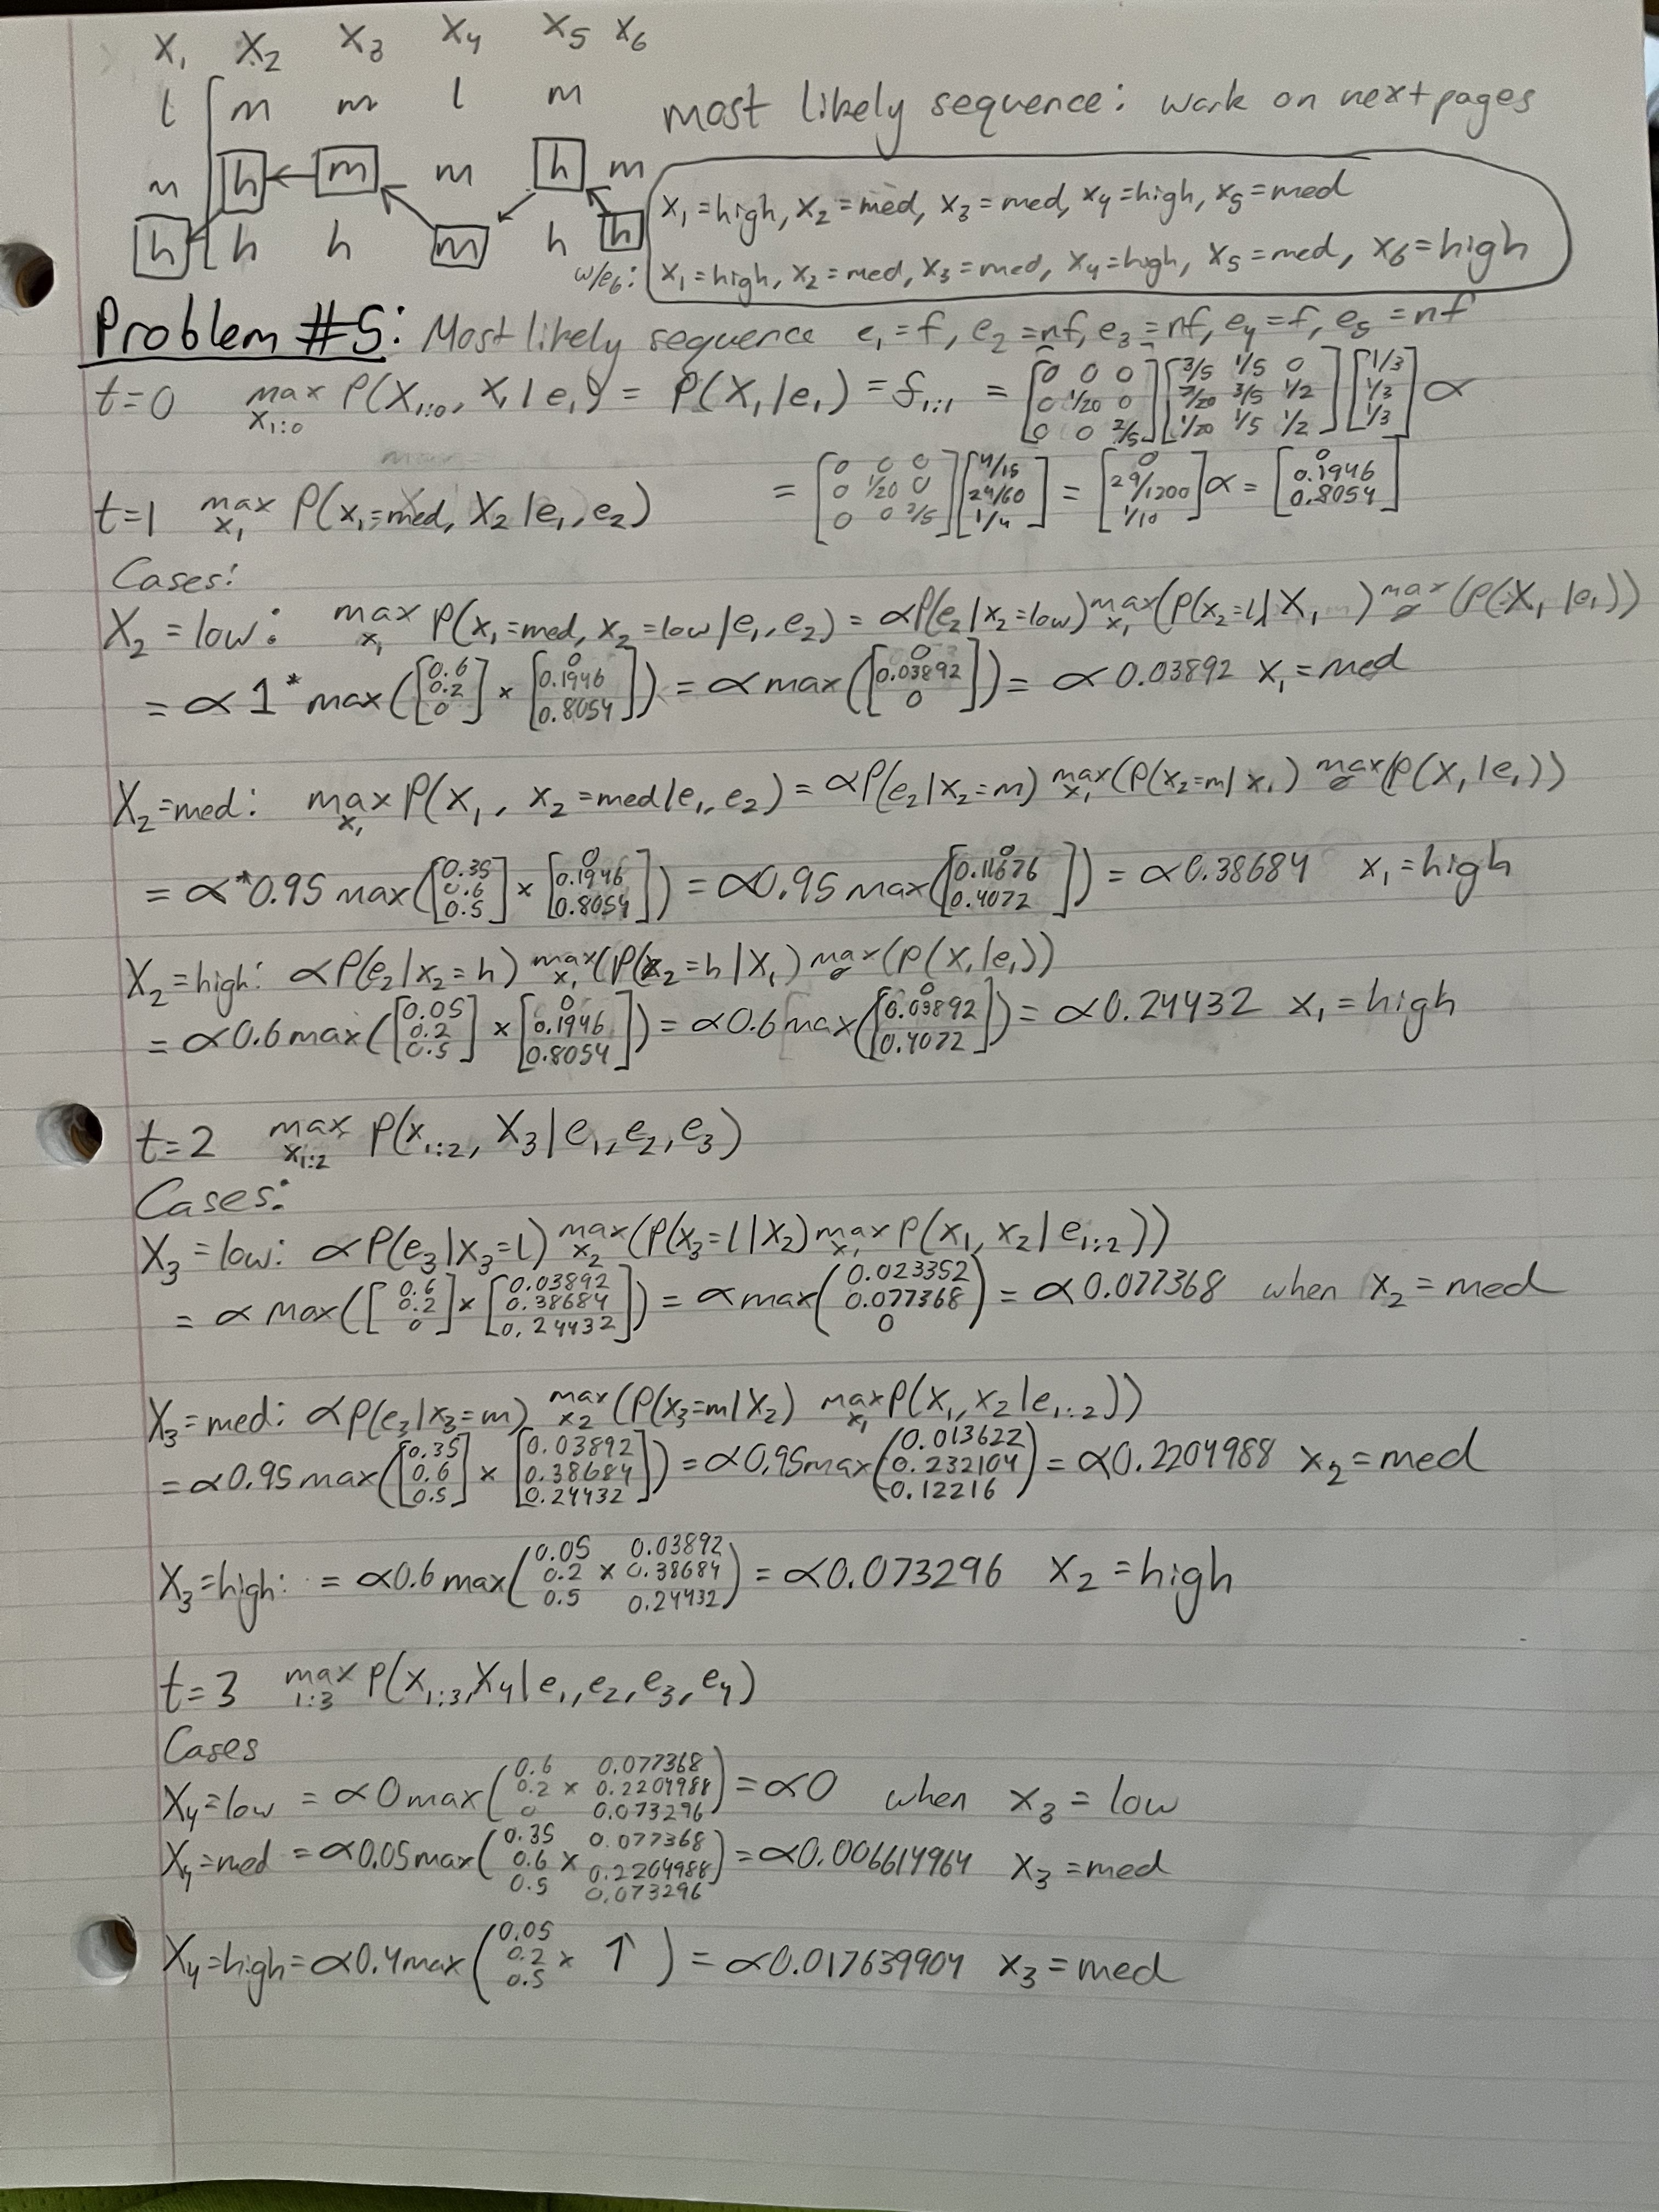 X₁ X₂ X₃ X₄ X₅ X₆
l m m l m
most likely sequence: work on next pages
m h m m h m
x₁=high, x₂=med, x₃=med, x₄=high, x₅=med
h h h m h h
w/e₆: x₁=high, x₂=med, x₃=med, x₄=high, x₅=med, x₆=high
Problem #5: Most likely sequence e₁=f, e₂=nf, e₃=nf, e₄=f, e₅=nf
t=0 max x₁:₀ P(X₁:₀, X₁|e₁) = P(X₁|e₁) = f₁:₁ = [0 0 0; 0 1/20 0; 0 0 2/5] [3/5 1/5 0; 7/20 3/5 1/2; 1/20 1/5 1/2] [1/3; 1/3; 1/3] α
= [0 0 0; 0 1/20 0; 0 0 2/5] [4/15; 29/60; 1/4] = [0; 29/1200; 1/10] α = [0; 0.1946; 0.8054]
t=1 max x₁ P(x₁=med, X₂|e₁, e₂)
Cases:
X₂=low: max x₁ P(x₁=med, x₂=low|e₁, e₂) = αP(e₂|x₂=low) max x₁ (P(x₂=l|X₁) max ø (P(X₁|e₁))
= α 1* max([0.6; 0.2; 0] × [0; 0.1946; 0.8054]) = α max([0; 0.03892; 0]) = α 0.03892 x₁=med
X₂=med: max x₁ P(X₁, x₂=med|e₁, e₂) = αP(e₂|x₂=m) max x₁ (P(x₂=m|x₁) max ø (P(X₁|e₁))
= α*0.95 max([0.35; 0.6; 0.5] × [0; 0.1946; 0.8054]) = α0.95 max([0; 0.11676; 0.4072]) = α0.38684 x₁=high
X₂=high: αP(e₂|x₂=h) max x₁ (P(x₂=h|X₁) max ø (P(X₁|e₁))
= α0.6 max([0.05; 0.2; 0.5] × [0; 0.1946; 0.8054]) = α0.6 max([0; 0.03892; 0.4072]) = α0.24432 x₁=high
t=2 max x₁:₂ P(x₁:₂, X₃|e₁, e₂, e₃)
Cases:
X₃=low: αP(e₃|x₃=l) max x₂ (P(x₃=l|X₂) max x₁ P(x₁, x₂|e₁:₂))
= α max([0.6; 0.2; 0] × [0.03892; 0.38684; 0.24432]) = α max(0.023352; 0.077368; 0) = α0.077368 when x₂=med
X₃=med: αP(e₃|x₃=m) max x₂ (P(x₃=m|X₂) max x₁ P(X₁, X₂|e₁:₂))
= α0.95 max([0.35; 0.6; 0.5] × [0.03892; 0.38684; 0.24432]) = α0.95 max(0.013622; 0.232104; 0.12216) = α0.2204988 x₂=med
X₃=high: = α0.6 max(0.05; 0.2; 0.5 × 0.03892; 0.38684; 0.24432) = α0.073296 x₂=high
t=3 max 1:3 P(x₁:₃, X₄|e₁, e₂, e₃, e₄)
Cases
X₄=low = α0 max(0.6; 0.2; 0 × 0.077368; 0.2204988; 0.073296) = α0 when x₃=low
X₄=med = α0.05 max(0.35; 0.6; 0.5 × 0.077368; 0.2204988; 0.073296) = α0.006614964 x₃=med
X₄=high = α0.4 max(0.05; 0.2; 0.5 × ↑) = α0.017639904 x₃=med